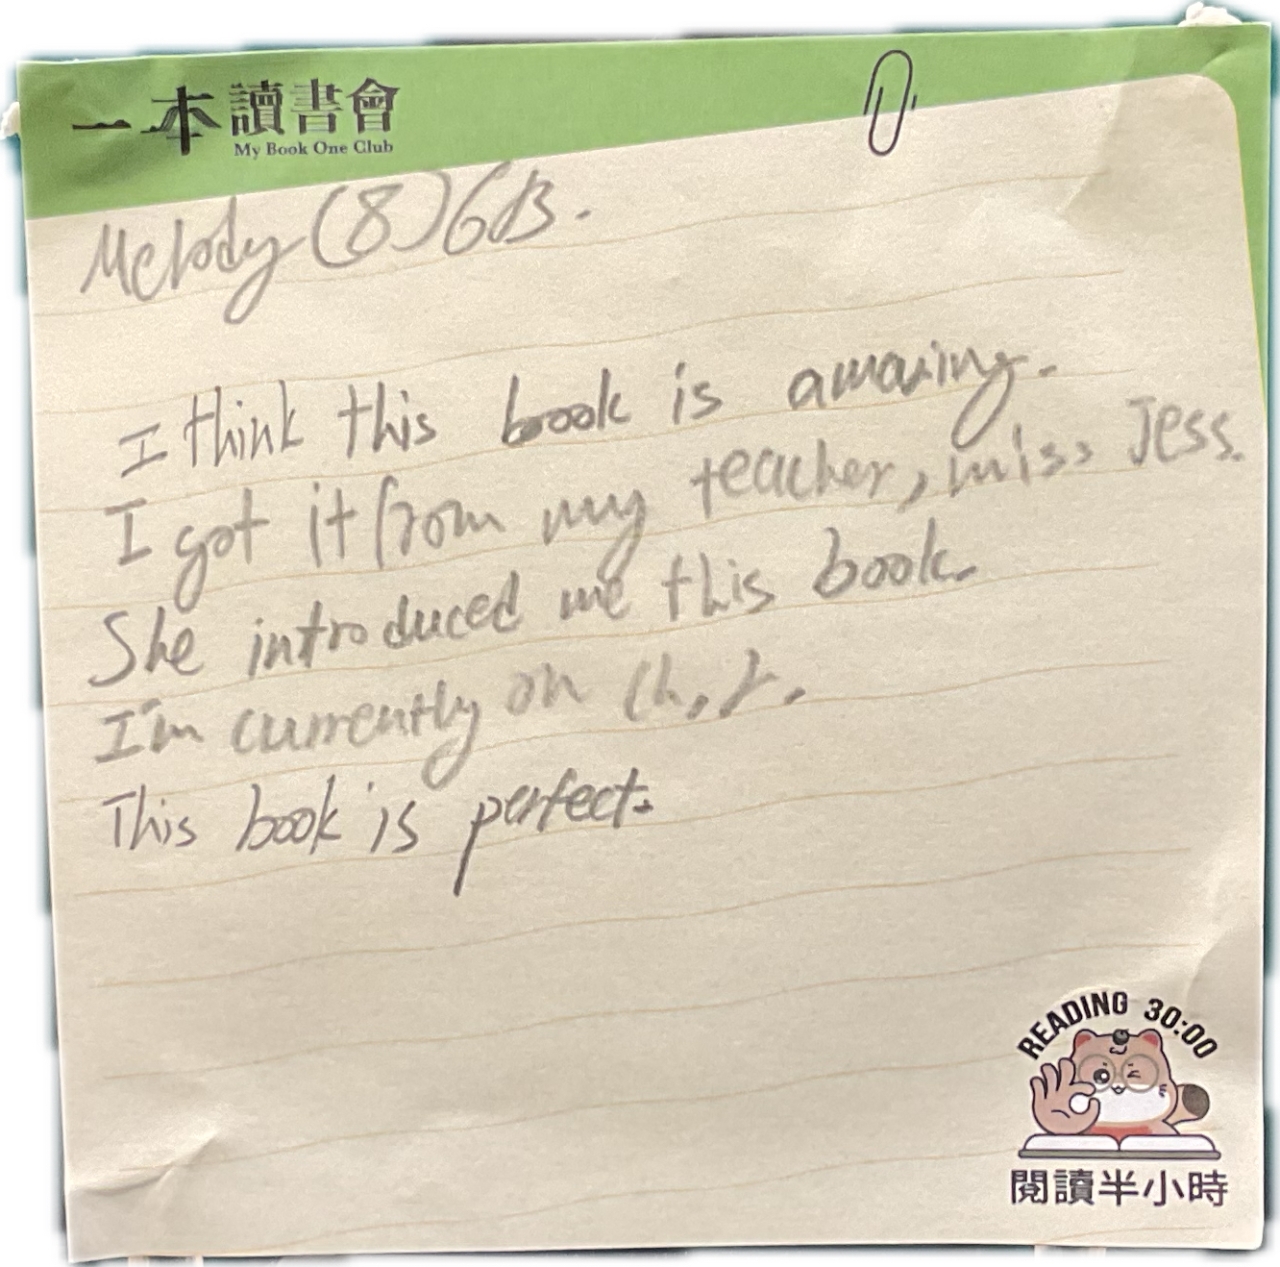 一本讀書會
My Book One Club
Melody (8) 6B.
I think this book is amazing.
I got it from my teacher, miss Jess.
She introduced me this book.
I'm currently on Ch,
This book is perfect.
READING 30:00
閱讀半小時